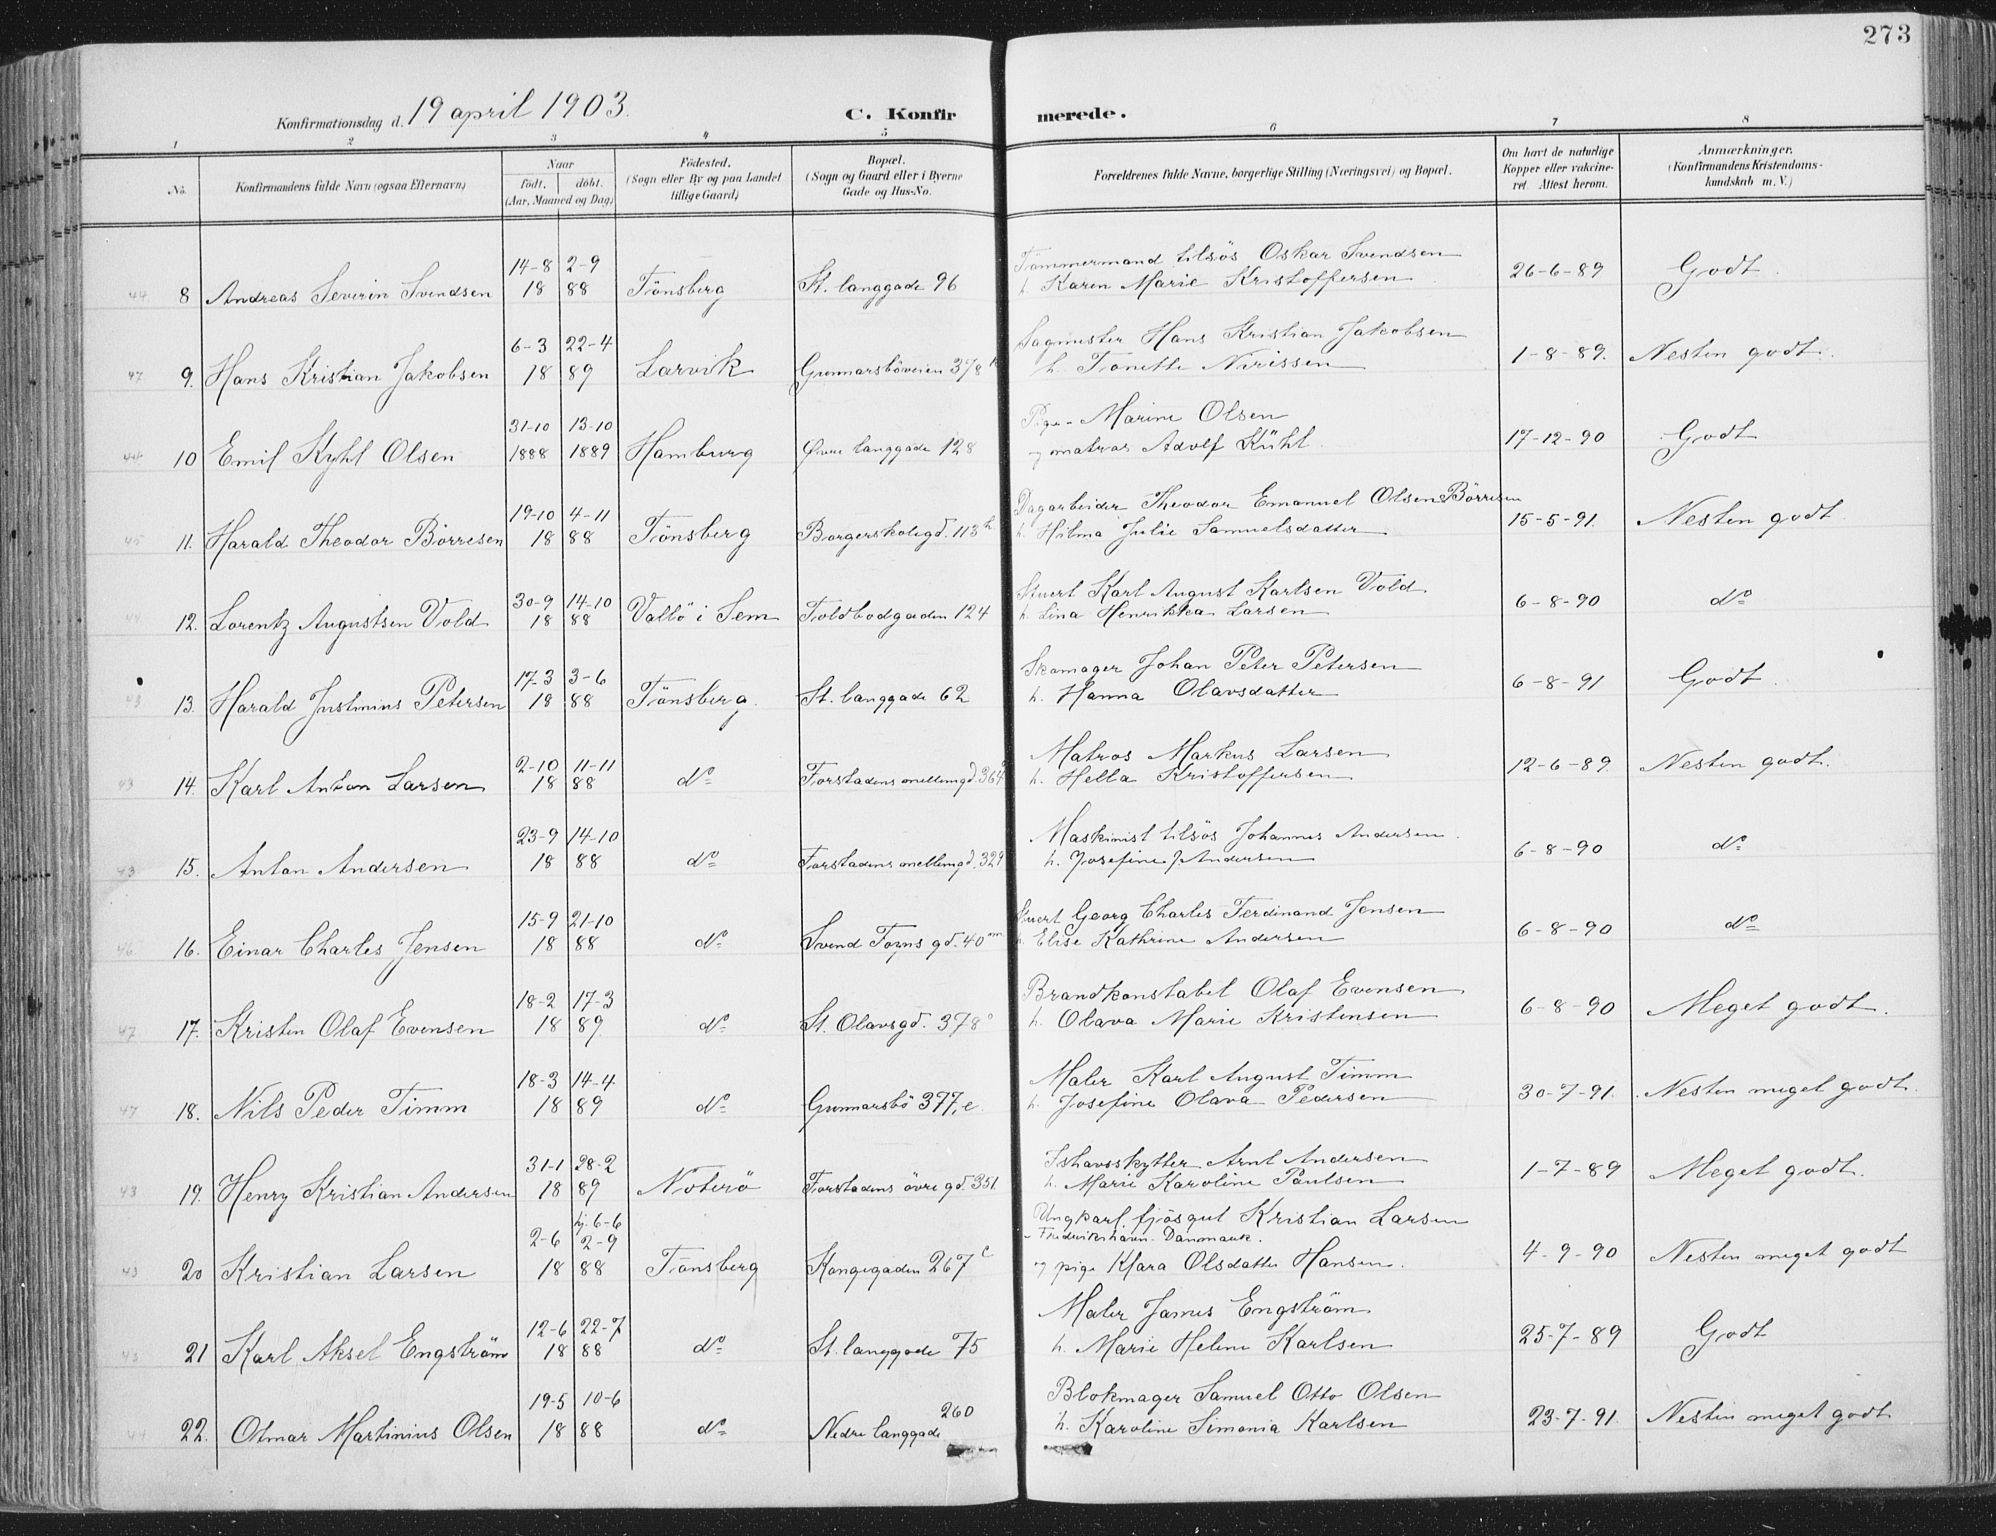 273
Konfirmationsdag d. 19 april 1903. C. Konfirmerede.
1 2 3 4 5 6 7 8
No. Konfirmandens fulde Navn (ogsaa Efternavn) Naar födt. döbt. (Aar, Maaned og Dag) Födested. (Sogn eller By og paa Landet tillige Gaard) Bopæl. (Sogn og Gaard eller i Byerne Gade og Hus-No. Forældrenes fulde Navne, borgerlige Stilling (Næringsvei) og Bopæl. Om havt de naturlige Kopper eller vakcineret Attest herom. Anmærkninger. (Konfirmandens Kristendomskundskab m. V.)
14-8 2-9 Tömmermand tilsös Oskar Svendsen
44 8 Andreas Severin Svendsen 18 88 Tönsberg St. langgade 96 h. Karen Marie Kristoffersen 26-6-89 Godt.
6-3 22-4 Sagmester Hans Kristian Jakobsen
47 9. Hans Kristian Jakobsen 18 89 Larvik Gunnarsböveien 378 h. Tonette Nirissen 1-8-89. Nesten godt.
31-10 13-10 Pige Marine Olsen
44 10 Emil Kyhl Olsen 1888 1889 Hamburg Övre langgade 128 og matros Adolf Kühl. 17-12-90 Godt
19-10 4-11 Dagarbeider Theodor Emanuel Olsen Börresen
45 11. Harald Theodor Börresen 18 88 Tönsberg Borgerskolegd. 113 h h. Hilma Julie Samuelsdatter 15-5-91. Nesten godt
30-9 14-10 Stuert Karl August Karlsen Vold
44 12. Lorentz Augustsen Vold 18 88 Vallö i Sem Toldbodgaden 124 h. Lina Henrikka Larsen 6-8-90 do
17-3 3-6 Skomager Johan Peter Petersen
43 13. Harald Justinius Petersen 18 88 Tönsberg. St. langgade 62 h. Hanna Olavsdatter 6-8-91 Godt.
2-10 11-11 Matros Markus Larsen
43 14. Karl Anton Larsen 18 88 do Forstadens mellemgd. 364 h. Hella Kristoffersen 12-6-89. Nesten godt.
23-9 14-10 Maskinist tilsös Johannes Andersen.
43 15. Anton Andersen 18 88 do Forstadens mellemgd. 329 h. Josefine J. Andersen 6-8-90 do
15-9 21-10 Stuert Georg Charles Ferdinand Jensen
46 16. Einar Charles Jensen 18 88 do Svend Foyns gd. 40 m h. Elise Kathrine Andersen 6-8-90 do
18-2 17-3 Brandkonstabel Olaf Evensen
47 17. Kristen Olaf Evensen 18 89. do St. Olavsgd. 378 c h. Olava Marie Kristensen 6-8-90 Meget godt.
18-3 14-4 Maler Karl August Timm
47 18. Nils Peder Timm 18 89 do Gunnarsbö 377, e. h. Josefine Olava Pedersen 30-7-91. Nesten meget godt.
31-1 28-2 Ishavsskytter Arnt Andersen
43 19. Henry Kristian Andersen 18 89 Nöterö Forstadens övre gd. 351 h. Marie Karoline Paulsen 1-7-89 Meget godt.
hj. 6-6 Ungkarl, fjösgut Kristian Larsen
2-6 2-9 Frederikshavn Danmark.
43 20 Kristian Larsen 18 88 Tönsberg Kongegaden 267 c og pige Klara Olsdatter Hansen. 4-9-90 Nesten meget godt
12-6 22-7 Maler James Engström
43 21 Karl Aksel Engström 18 88 do St. langgade 75 h. Marie Helene Karlsen 25-7-89 Godt
19-5 10-6 260 Blokmager Samuel Otto Olsen
44 22. Otmar Martinius Olsen 18 88 do Nedre langgade h. Karoline Simonia Karlsen 23-7-91. Nesten meget godt